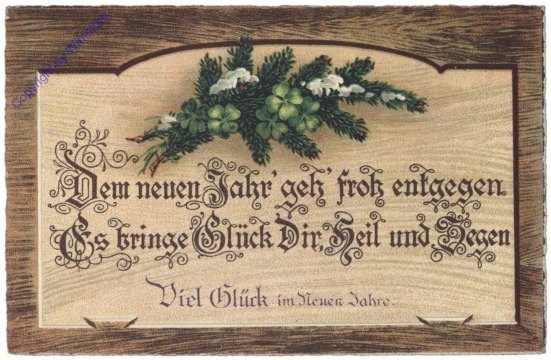 Dem neuen Jahr' geh' froh entgegen.
Es bringe Glück Dir, Heil und Segen
Viel Glück im Neuen Jahre.